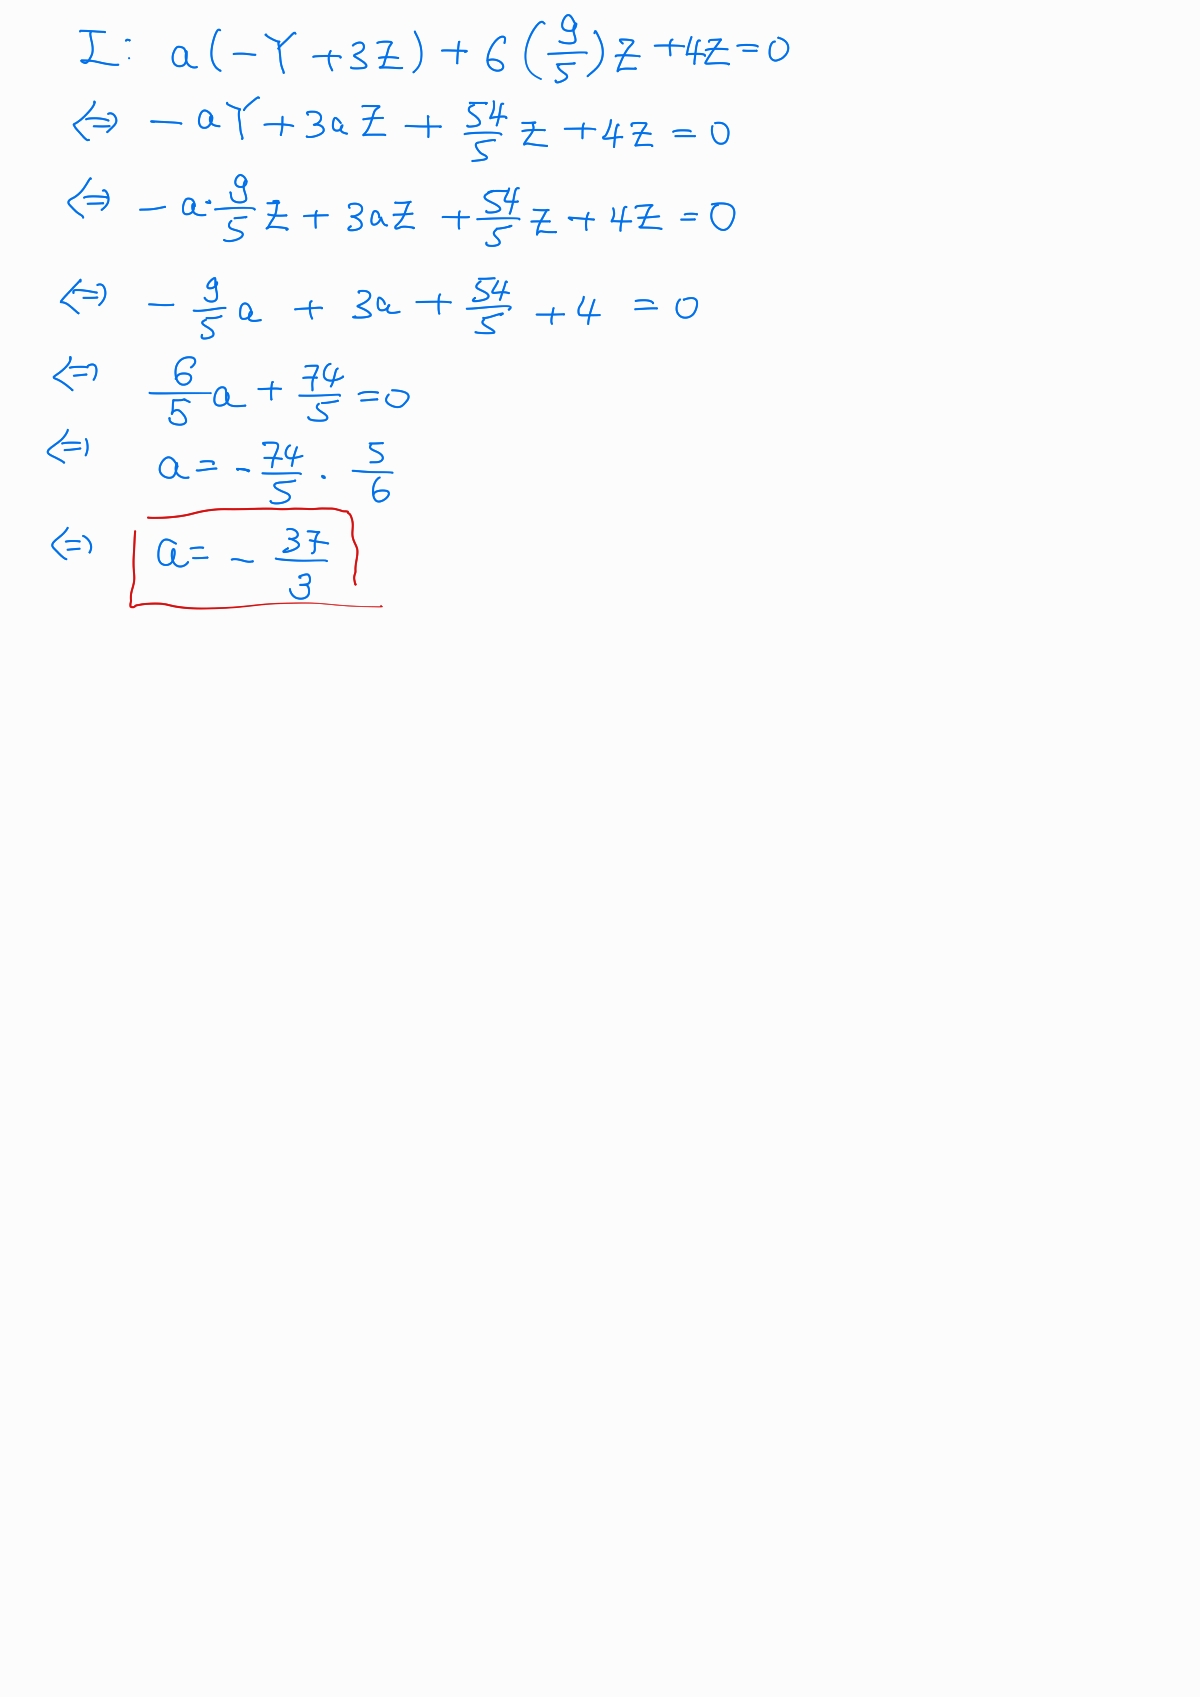 I: a(-Y+3Z)+6(9/5)Z+4Z=0
⇔ -aY+3aZ+54/5Z+4Z=0
⇔ -a·9/5Z+3aZ+54/5Z+4Z=0
⇔ -9/5a+3a+54/5+4=0
⇔ 6/5a+74/5=0
⇔ a=-74/5·5/6
⇔ a=-37/3